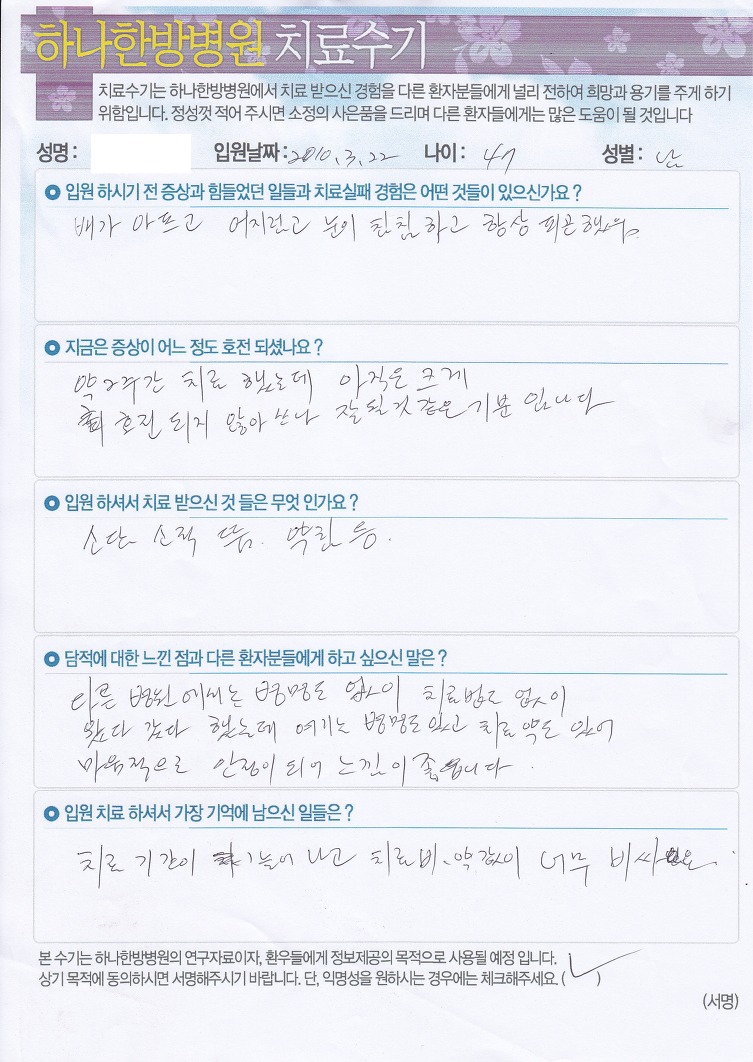 하나한방병원 치료수기
치료수기는 하나한방병원에서 치료 받으신 경험을 다른 환자분들에게 널리 전하여 희망과 용기를 주게 하기
위함입니다. 정성껏 적어 주시면 소정의 사은품을 드리며 다른 환자들에게는 많은 도움이 될 것입니다
성명 : 입원날짜 : 2010. 3. 22 나이 : 47 성별 : 남
입원 하시기 전 증상과 힘들었던 일들과 치료실패 경험은 어떤 것들이 있으신가요 ?
배가 아프고 어지럽고 눈이 침침하고 항상 피곤했음
지금은 증상이 어느 정도 호전 되셨나요 ?
약 2주간 치료 했는데 아직은 크게
호전 되지 않아 잘 될것 같은 기분 입니다
입원 하셔서 치료 받으신 것 들은 무엇 인가요 ?
소적 뜸. 약침 등.
담적에 대한 느낀 점과 다른 환자분들에게 하고 싶으신 말은 ?
다른 병원에서는 병명도 없이 치료법도 없이
왔다 갔다 했는데 여기는 병명도 있고 치료약도 있어
마음적으로 안정이 되어 느낌이 좋습니다.
입원 치료 하셔서 가장 기억에 남으신 일들은 ?
치료 기간이 늘어 나고 치료비. 약값이 너무 비싸요.
본 수기는 하나한방병원의 연구자료이자, 환우들에게 정보제공의 목적으로 사용될 예정 입니다.
상기 목적에 동의하시면 서명해주시기 바랍니다. 단, 익명성을 원하시는 경우에는 체크해주세요. ( ✓ )
(서명)